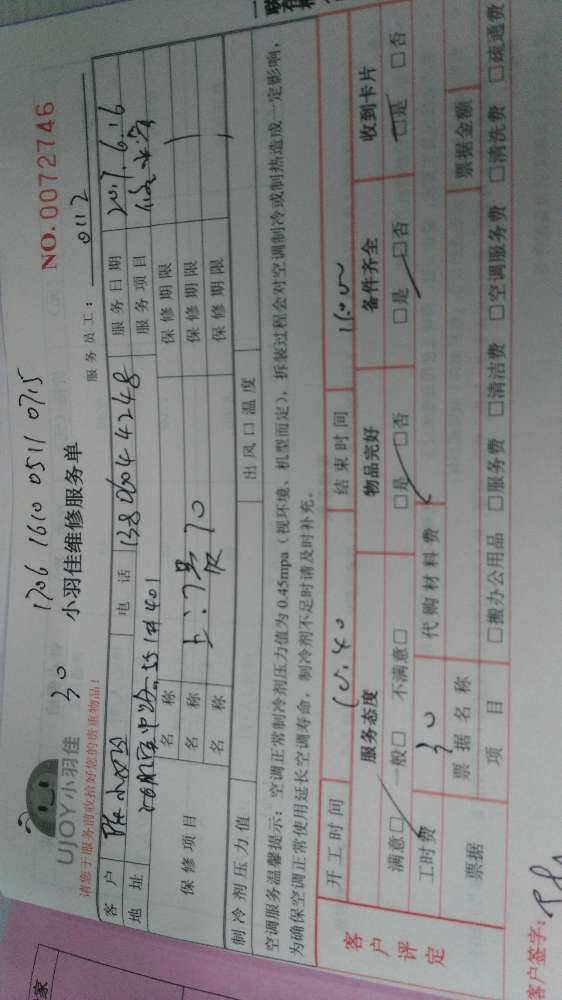 1706 1610 0511 0715
30
UJOY小羽佳 小羽佳维修服务单 NO.0072746
请您于服务前收拾好您的贵重物品!
服务员工: 0112
客户 电话 13806044248 服务日期 2017.6.16
地址 服务项目
保修项目
名称 保修期限
名称 保修期限
名称 保修期限
制冷剂压力值 出风口温度
空调服务温馨提示:空调正常制冷剂压力值为0.45mpa(视环境、机型而定),拆装过程会对空调制冷或制热造成一定影响,
为确保空调正常使用延长空调寿命,制冷剂不足时请及时补充。
开工时间 结束时间
客户评定
服务态度 物品完好 备件齐全 收到卡片
满意□ 一般□ 不满意□ □是 □否 □是 □否 □是 □否
工时费 30 代购材料费
票据 票据名称 票据金额
项目 □搬办公用品 □服务费 □清洁费 □空调服务费 □清洗费 □疏通费
客户签字: